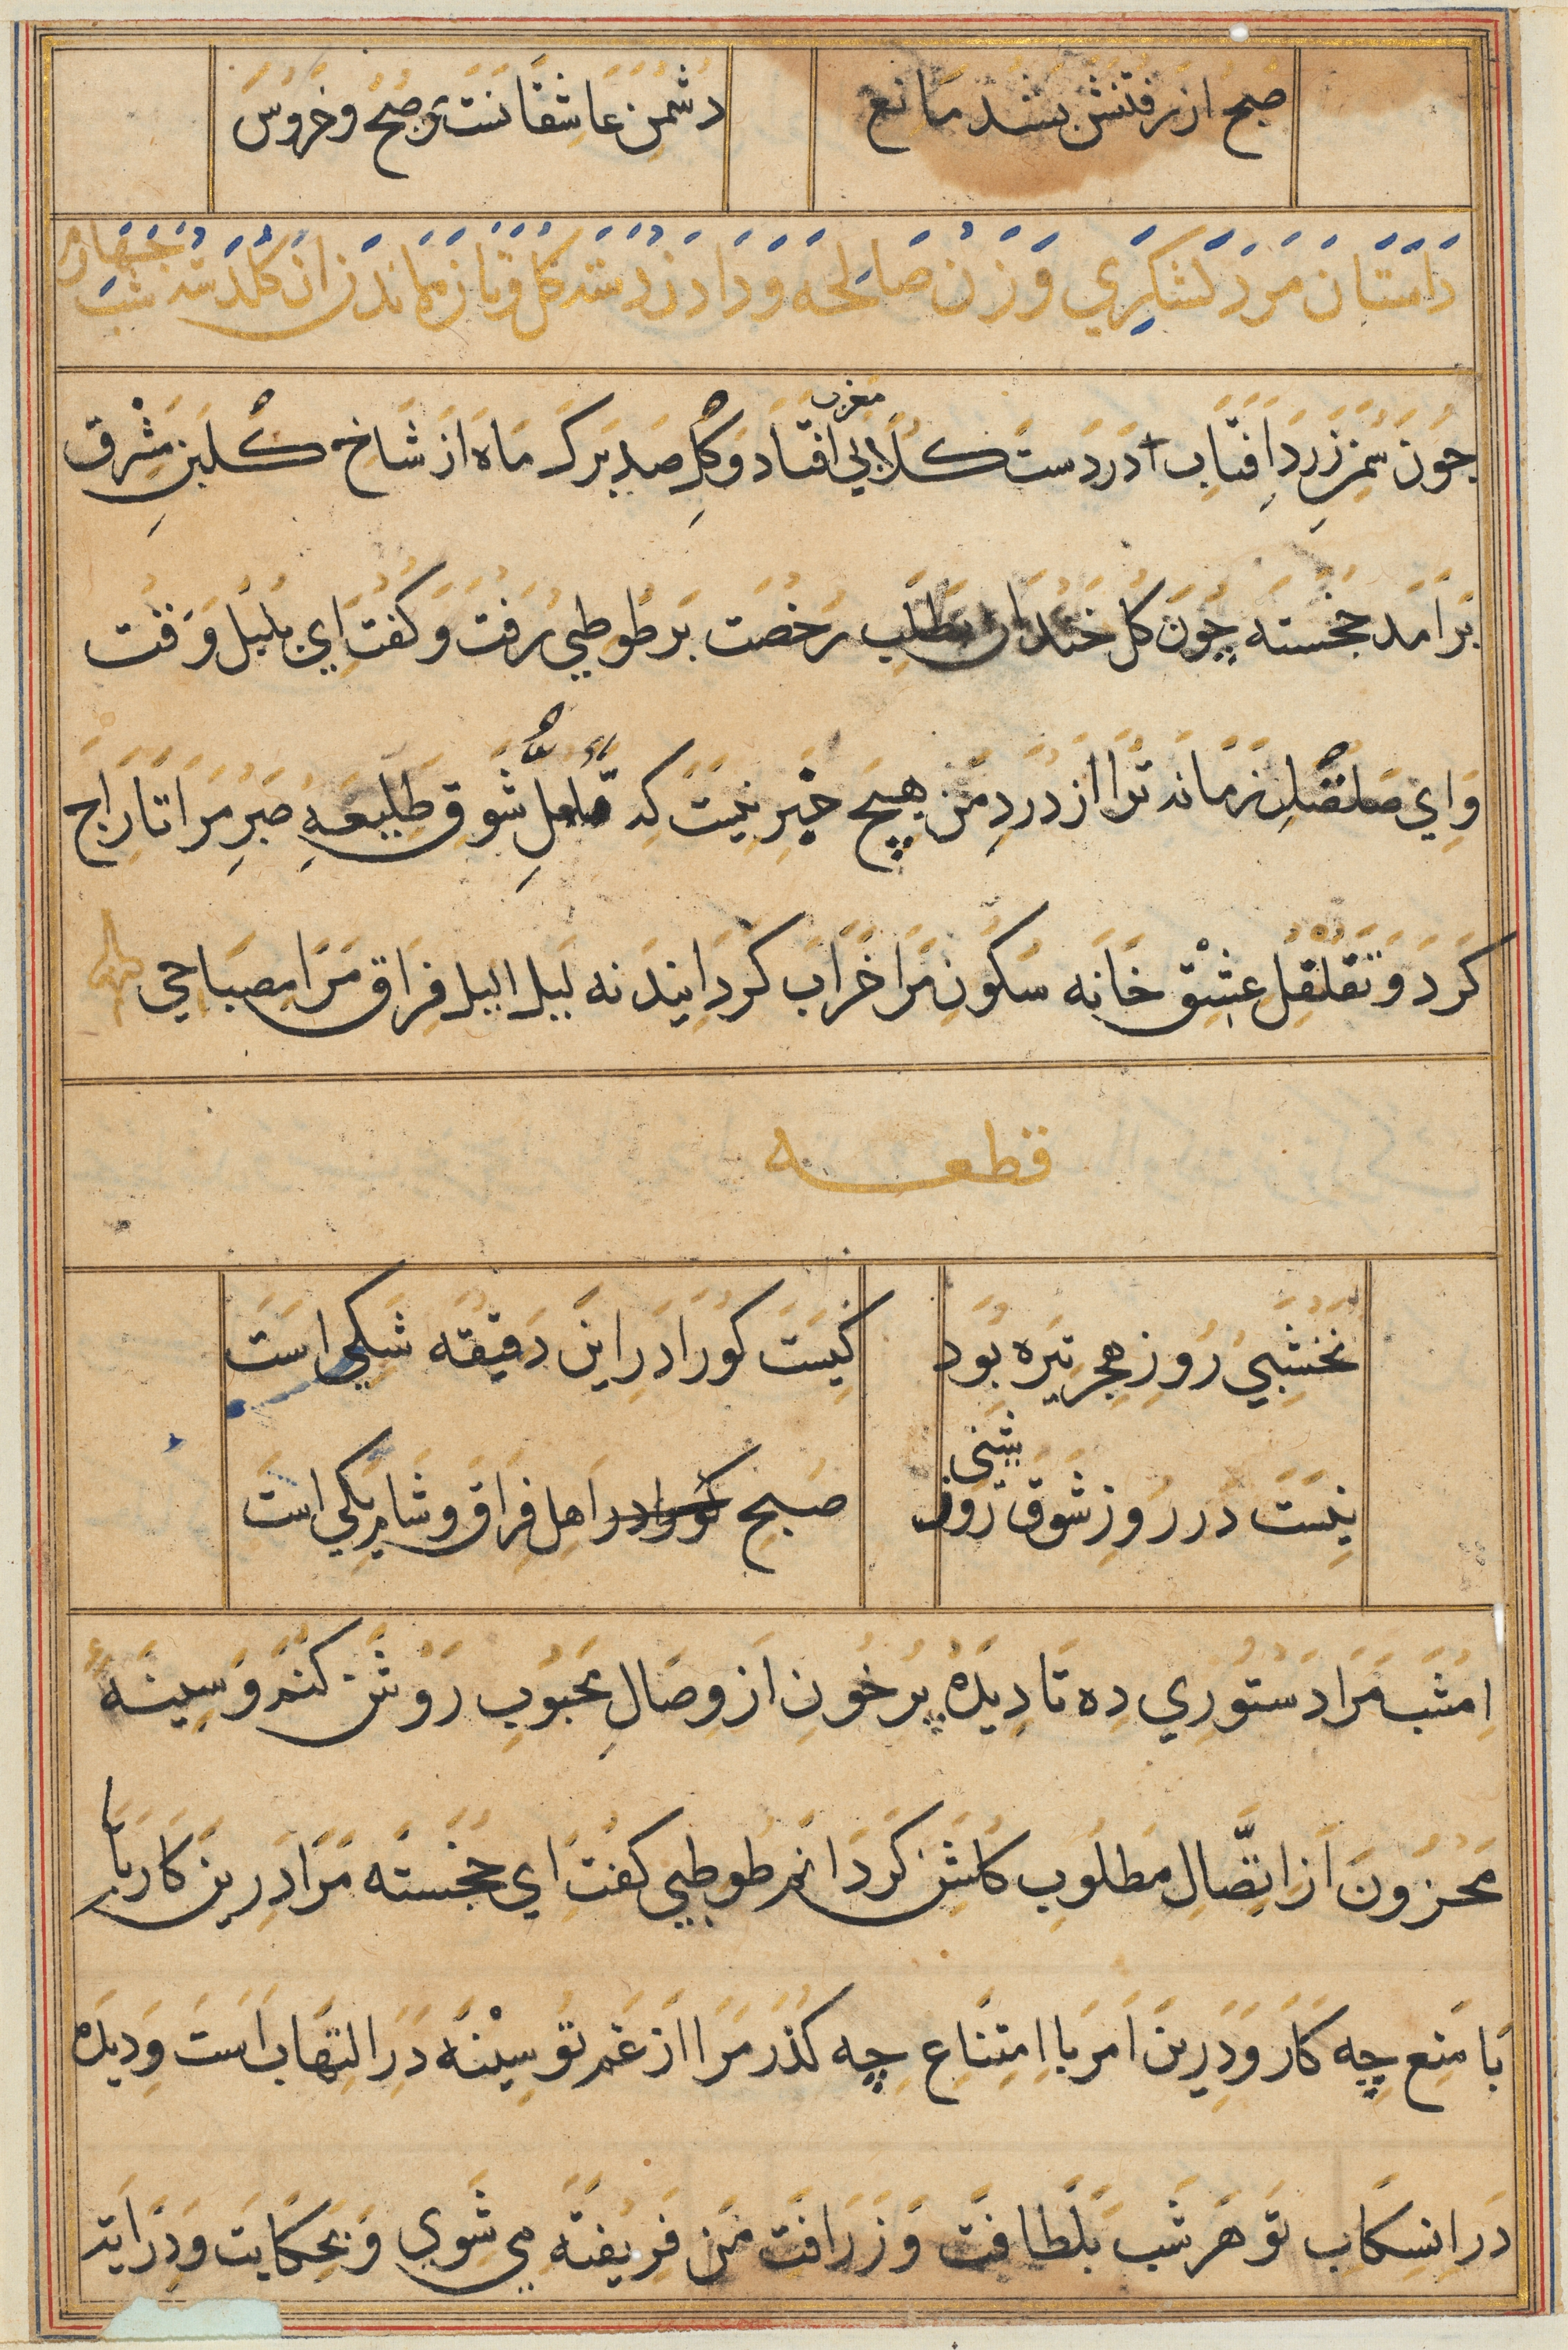 صبح از رفتنش بشد مانع
دشمن عاشقانست صبح و خروس
داستان مرد لشكري و زن صالحه و دادن دسته كل و تازه ماندن ان كلدسته شب چهارم
چون سمن زرد افتاب در دست كلابي مغرب افتاد و كل صد برك ماه از شاخ كلبن مشرق
برامد خجسته چون كل خندان بطلب رخصت بر طوطي رفت و كفت اي بلبل وقت
واي صلصل زمانه ترا از درد من هيچ خبر نيست كه شوق طليعه صبر مرا تاراج
كرد و تقلقل عشق خانه سكون مرا خراب كردانيد نه ليل اليل فراق مرا مصباحي
قطعه
نخشبي روز هجر تيره بود
كيست كو را در اين دقيقه شكي است
نيست در روز شوق روز شبي
صبح اهل فراق و شام يكي است
امشب مرا دستوري ده تا ديده پر خون از وصال محبوب روشن كنم و سينه
محزون از اتصال مطلوب كلشن كردانم طوطي كفت اي خجسته مرا درين كار با
با منع چه كار و درين امر با امتناع چه كذر مرا از غم تو سينه در التهاب است و ديده
در انسكاب تو هر شب بلطافت و زرافت من فريفته مي شوي و بحكايت و درايت